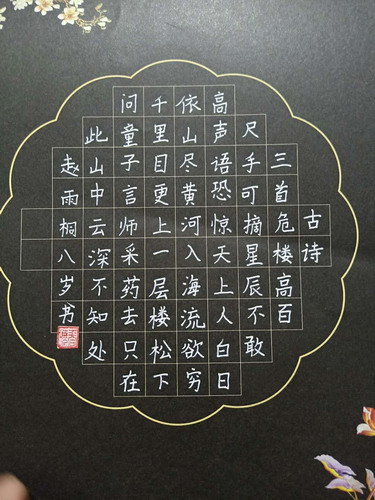 古诗
三首危楼高百
尺手可摘星辰不敢
高声语恐惊天上人白日
依山尽黄河入海流欲穷
千里目更上一层楼松下
问童子言师采药去只在
此山中云深不知处
赵雨桐八岁书